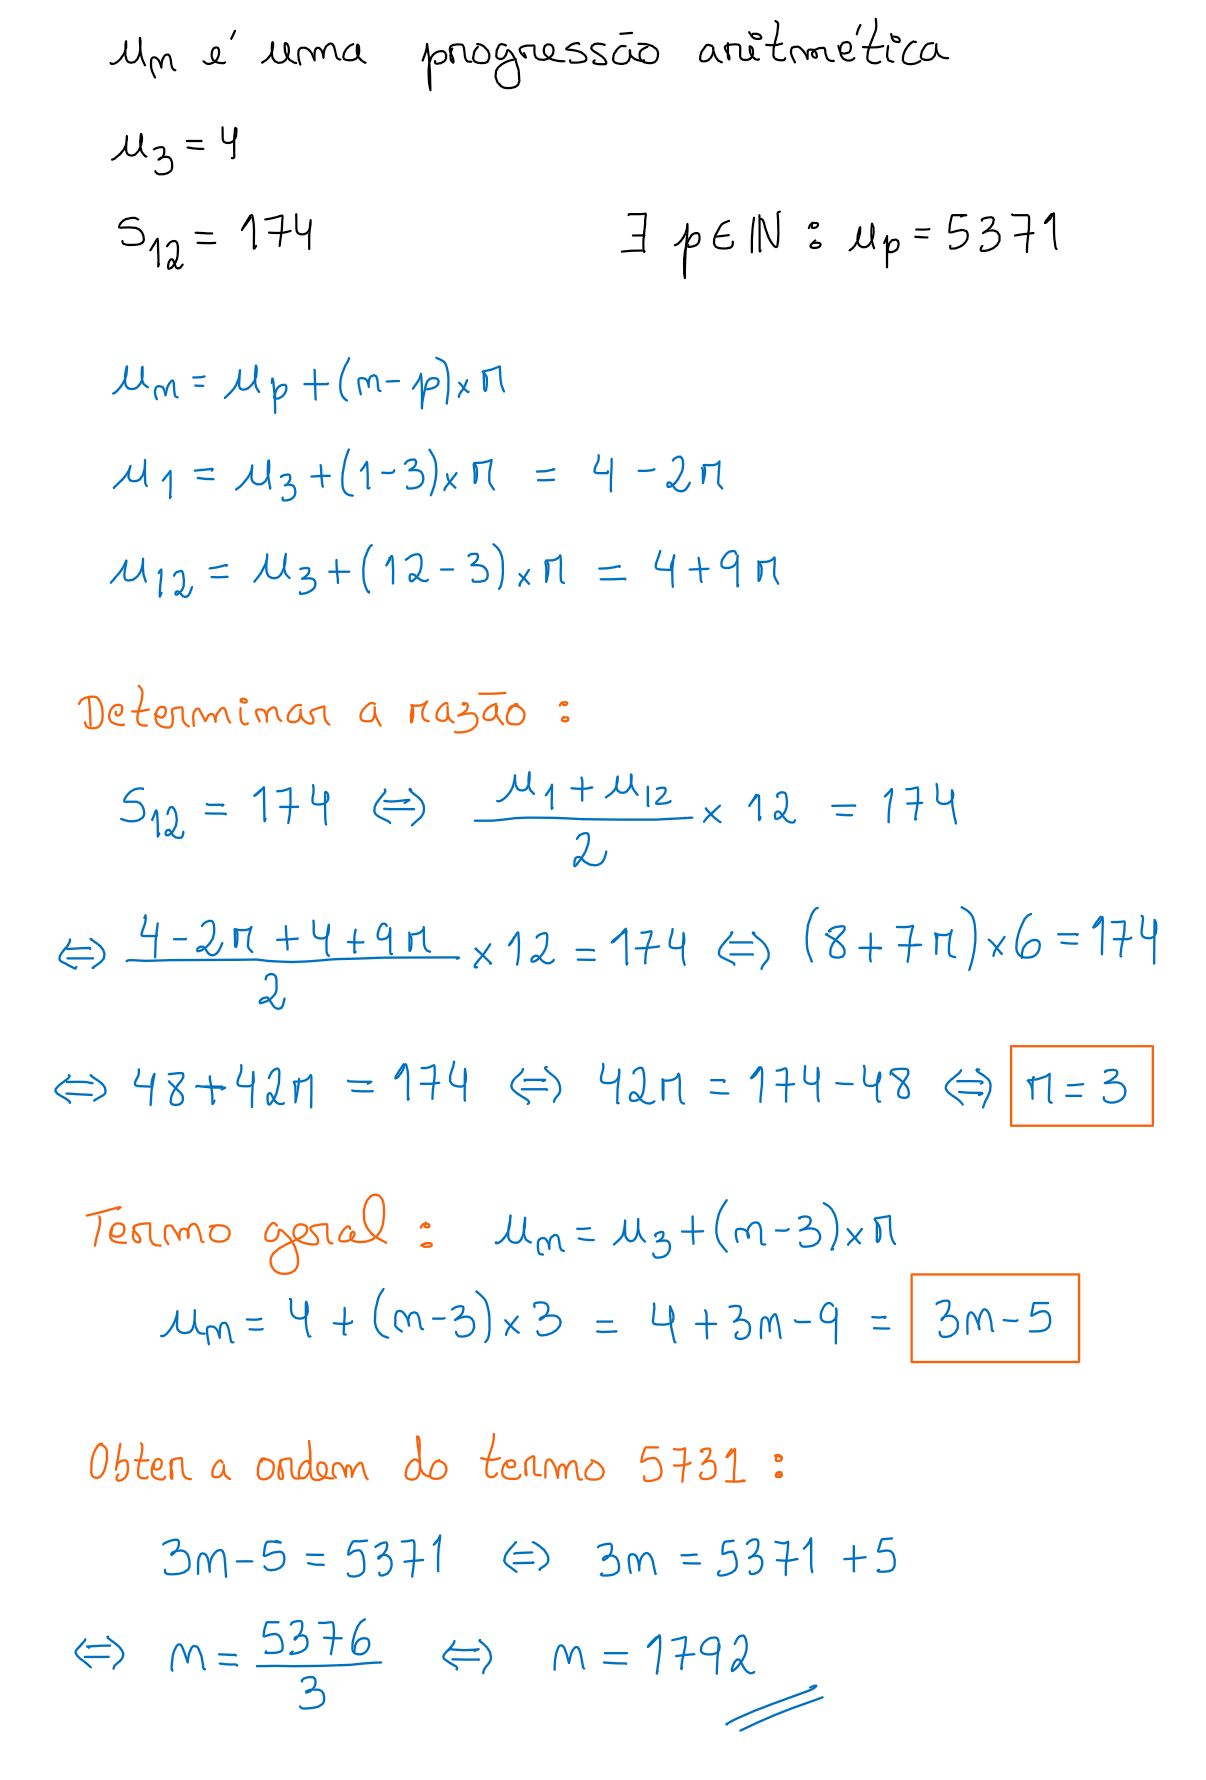 uₙ é uma progressão aritmética
u₃ = 4
S₁₂ = 174 ∃ p ∈ ℕ : uₚ = 5371
uₙ = uₚ + (n - p) × r
u₁ = u₃ + (1 - 3) × r = 4 - 2r
u₁₂ = u₃ + (12 - 3) × r = 4 + 9r
Determinar a razão :
S₁₂ = 174 ⇔ (u₁ + u₁₂)/2 × 12 = 174
⇔ (4 - 2r + 4 + 9r)/2 × 12 = 174 ⇔ (8 + 7r) × 6 = 174
⇔ 48 + 42r = 174 ⇔ 42r = 174 - 48 ⇔ r = 3
Termo geral : uₙ = u₃ + (n - 3) × r
uₙ = 4 + (n - 3) × 3 = 4 + 3n - 9 = 3n - 5
Obter a ordem do termo 5731 :
3n - 5 = 5371 ⇔ 3n = 5371 + 5
⇔ n = 5376/3 ⇔ n = 1792